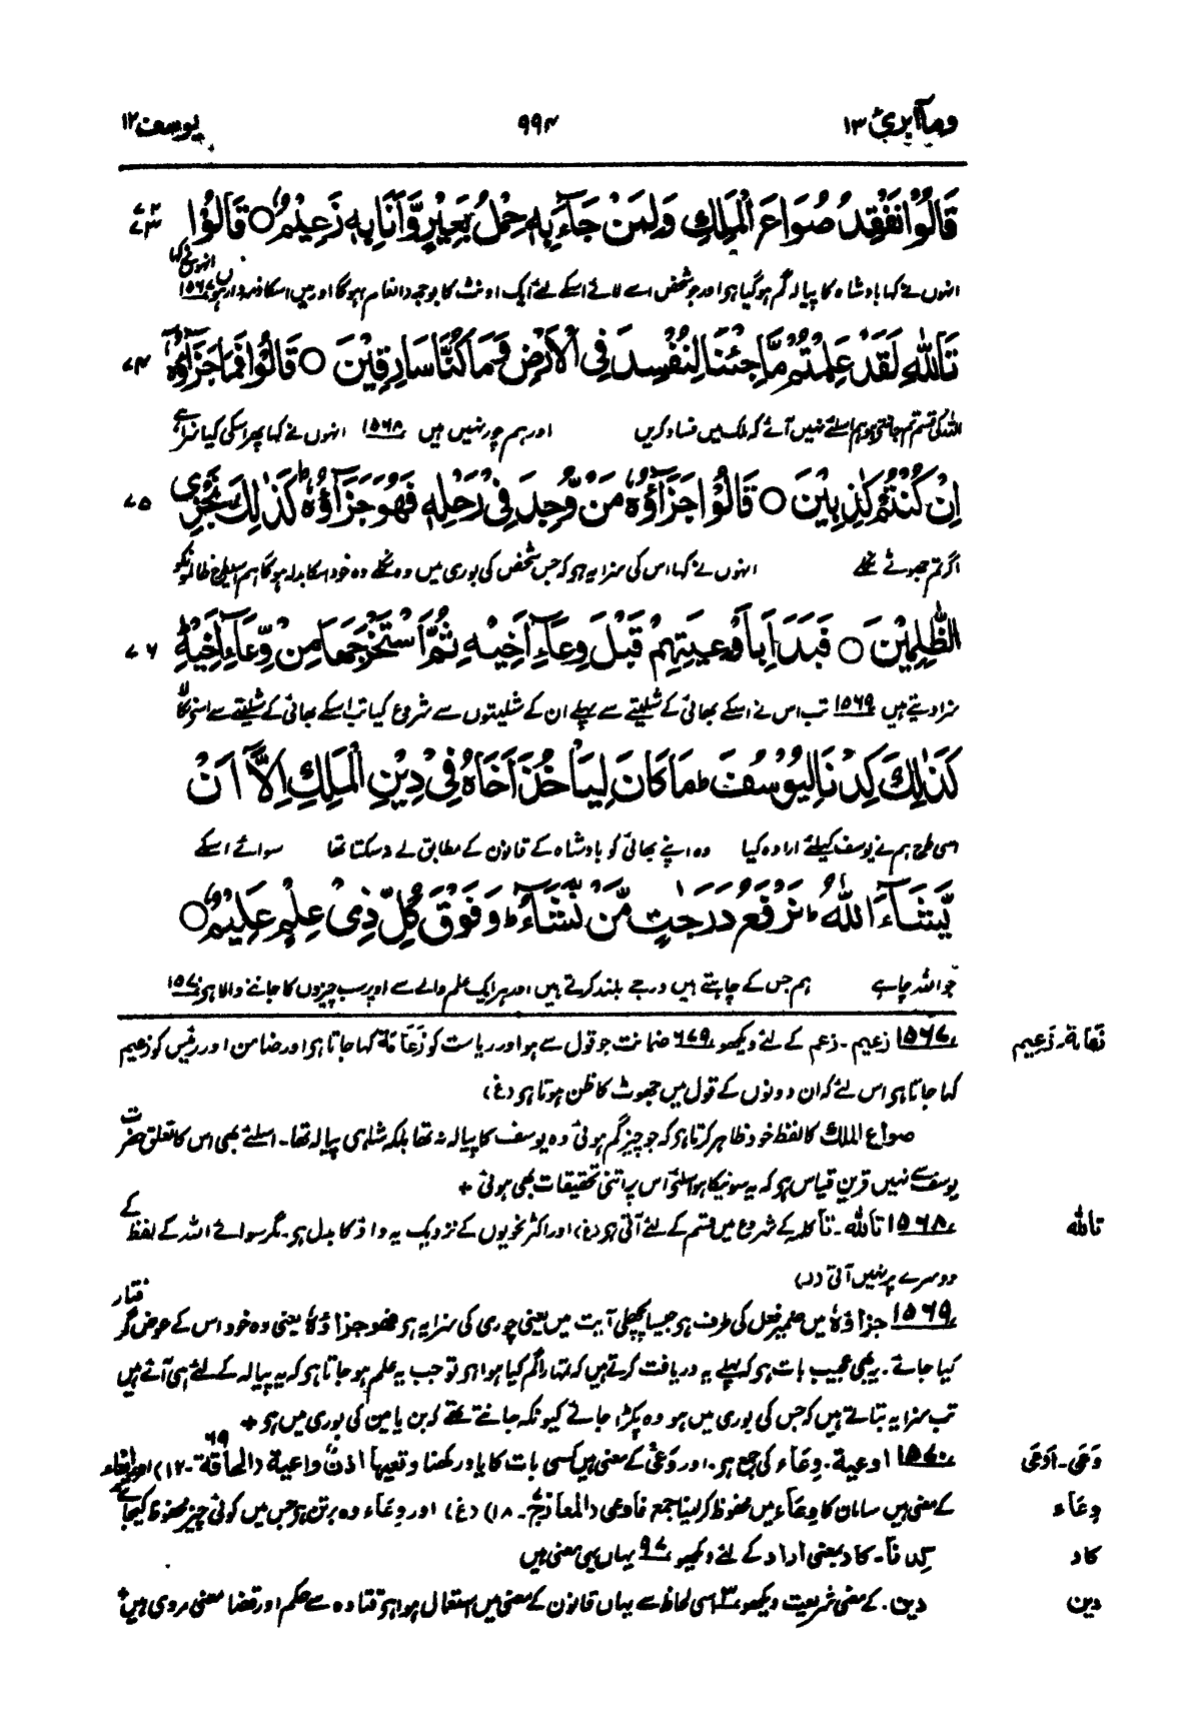 ومآ ابرئ ١٣
٩٩٤
يوسف ١٢
قَالُوْا نَفْقِدُ صُوَاعَ الْمَلِكِ وَلِمَنْ جَآءَ بِهٖ حِمْلُ بَعِيْرٍ وَّاَنَا بِهٖ زَعِيْمٌ ○ قَالُوْا
٧٢ ٧٣
انہوں نے کہا بادشاہ کا پیالہ گم ہوگیا ہو اور جو شخص اسے لائے اسکے لئے ایک اونٹ کا بوجھ (انعام) ہوگا اور میں اسکا ذمہ دار ہوں ١٥٦٧ انہوں نے کہا
تَاللّٰهِ لَقَدْ عَلِمْتُمْ مَّا جِئْنَا لِنُفْسِدَ فِى الْاَرْضِ وَمَا كُنَّا سَارِقِيْنَ ○ قَالُوْا فَمَا جَزَآؤُهٗٓ
٧٤
اللہ کی قسم تم جانتے ہو ہم اسلئے نہیں آئے کہ ملک میں فساد کریں اور ہم چور نہیں ہیں ١٥٦٨ انہوں نے کہا پھر اسکی کیا سزا ہے
اِنْ كُنْتُمْ كٰذِبِيْنَ ○ قَالُوْا جَزَآؤُهٗ مَنْ وُّجِدَ فِىْ رَحْلِهٖ فَهُوَ جَزَآؤُهٗ ؕ كَذٰلِكَ نَجْزِى
٧٥
اگر تم جھوٹے نکلے انہوں نے کہا اس کی سزا یہ ہو کہ جس شخص کی بوری میں وہ نکلے وہ خود اسکا بدلہ ہوگا ہم اسیطرح ظالمونکو
الظّٰلِمِيْنَ ○ فَبَدَاَ بِاَوْعِيَتِهِمْ قَبْلَ وِعَآءِ اَخِيْهِ ثُمَّ اسْتَخْرَجَهَا مِنْ وِّعَآءِ اَخِيْهِ ؕ
٧٦
سزا دیتے ہیں ١٥٦٩ تب اس نے اسکے بھائی کے شلیتے سے پہلے ان کے شلیتوں سے شروع کیا تب اسکے بھائی کے شلیتے سے اسنے نکالا
كَذٰلِكَ كِدْنَا لِيُوْسُفَ ؕ مَا كَانَ لِيَاْخُذَ اَخَاهُ فِىْ دِيْنِ الْمَلِكِ اِلَّآ اَنْ
اسی طرح ہم نے یوسف کیلئے ارادہ کیا وہ اپنے بھائی کو بادشاہ کے قانون کے مطابق لے نہ سکتا تھا سوائے اسکے
يَّشَآءَ اللّٰهُ ؕ نَرْفَعُ دَرَجٰتٍ مَّنْ نَّشَآءُ ؕ وَفَوْقَ كُلِّ ذِىْ عِلْمٍ عَلِيْمٌ ○
جو اللہ چاہے ہم جس کے چاہتے ہیں درجے بلند کرتے ہیں اور ہر ایک علم والے سے اوپر سب چیزوں کا جاننے والا ہو ١٥٧٠
زَعَامَة۔ زعیم
١٥٦٧ زعیم۔ زعم کے لئے دیکھو ٦٧٩ ضمانت جو قول سے ہو اور ریاست کو زَعَامَة کہا جاتا ہو اور ضامن اور رئیس کو زعیم
کہا جاتا ہو اس لئے کہ ان دونوں کے قول میں جھوٹ کا ظن ہوتا ہو (غ)
صواع الملك کا لفظ خود ظاہر کرتا ہو کہ جو چیز گم ہوئی وہ یوسف کا پیالہ نہ تھا بلکہ شاہی پیالہ تھا۔ اسلئے بھی اس کا تعلق حضرت
یوسف سے نہیں قرین قیاس ہو کہ یہ سونیکا ہو اسلئے اس پر اتنی تحقیقات بھی ہوئی +
تالله
١٥٦٨ تالله۔ تا کلمہ کے شروع میں قسم کے لئے آتی ہو (غ) اور اکثر نحویوں کے نزدیک یہ واؤ کا بدل ہو۔ مگر سوائے اللہ کے لفظ کے
دوسرے پر نہیں آتی (ر)
١٥٦٩ جزاؤہ میں ضمیر فعل کی طرف ہو جیسا پچھلی آیت میں یعنی چوری کی سزا یہ ہو فھو جزاؤہ یعنی وہ خود اس کے عوض گرفتار
کیا جائے۔ یہ بھی عجیب بات ہو کہ پہلے یہ دریافت کرتے ہیں کہ تمہارا گم کیا ہوا ہو تو جب یہ علم ہو جاتا ہو کہ یہ پیالہ کے لئے ہی آئے ہیں
تب سزا یہ بتاتے ہیں کہ جس کی بوری میں ہو وہ پکڑا جائے کیونکہ جانتے تھے کہ بن یامین کی بوری میں ہو +
وَعَى۔ اَوعَى
١٥٧٠ اوعية۔ وِعَاء کی جمع ہو۔ اور وَعْى کے معنی ہیں کسی بات کا یاد رکھنا وتعيها اذن واعية (الحاقة ٦٩۔ ١٢) اور ایعاء
وِعَاء
کے معنی ہیں سامان کا وِعَاء میں محفوظ کر لینا جمع فاوعى (المعارج ٧٠۔ ١٨) (غ) اور وِعَاء وہ برتن ہو جس میں کوئی چیز محفوظ کیجائے
كاد
كدنا۔ كاد بمعنی اراد کے لئے دیکھو ٩٧ یہاں یہی معنی ہیں
دين
دين۔ کے معنی شریعت دیکھو ٣ اسی لحاظ سے یہاں قانون کے معنی میں استعمال ہوا ہو قتادہ سے حکم اور قضا معنی مروی ہیں +